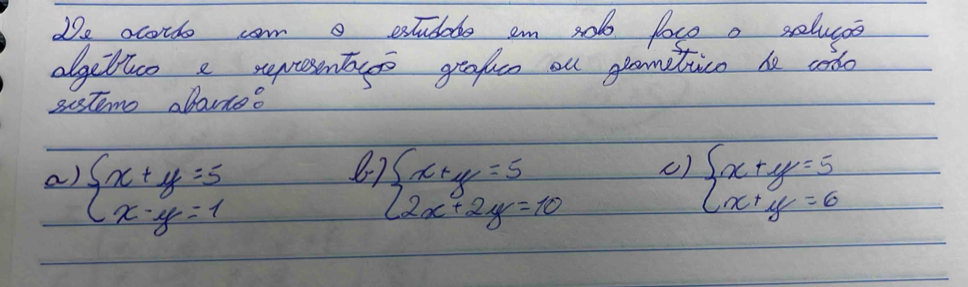 De acordo com o estudado em sala faça a solução
algébrica e representação grafica ou geométrica de cada
sistema abaixo:
a) { x + y = 5 b) { x + y = 5 c) { x + y = 5
x - y = 1 2x + 2y = 10 x + y = 6